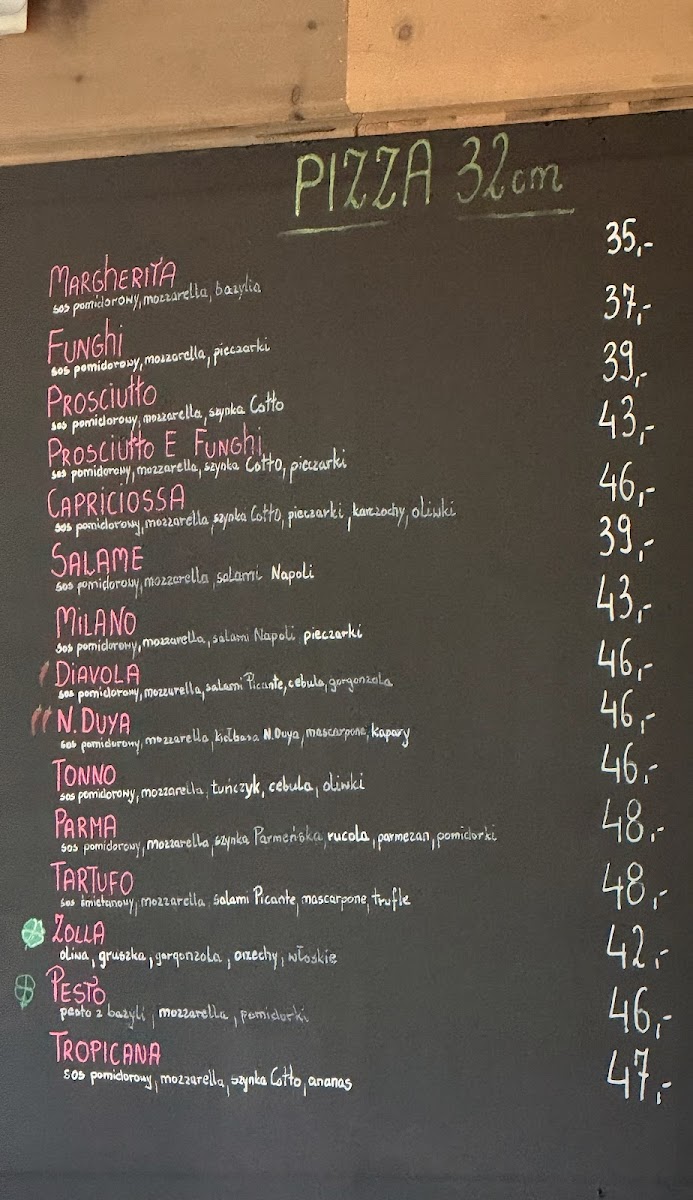 PIZZA 32cm
MARGHERITA 35,-
sos pomidorowy, mozzarella, bazylia
FUNGHI 37,-
sos pomidorowy, mozzarella, pieczarki
PROSCIUTTO 39,-
sos pomidorowy, mozzarella, szynka Cotto
PROSCIUTTO E FUNGHI 43,-
sos pomidorowy, mozzarella, szynka Cotto, pieczarki
CAPRICIOSSA 46,-
sos pomidorowy, mozzarella, szynka Cotto, pieczarki, karczochy, oliwki
SALAME 39,-
sos pomidorowy, mozzarella, salami Napoli
MILANO 43,-
sos pomidorowy, mozzarella, salami Napoli, pieczarki
DIAVOLA 46,-
sos pomidorowy, mozzarella, salami Picante, cebula, gorgonzola
N.DUYA 46,-
sos pomidorowy, mozzarella, kiełbasa N.Duya, mascarpone, kapary
TONNO 46,-
sos pomidorowy, mozzarella, tuńczyk, cebula, oliwki
PARMA 48,-
sos pomidorowy, mozzarella, szynka Parmeńska, rucola, parmezan, pomidorki
TARTUFO 48,-
sos śmietanowy, mozzarella, salami Picante, mascarpone, trufle
ZOLLA 42,-
oliwa, gruszka, gorgonzola, orzechy, włoskie
PESTO 46,-
pesto z bazyli, mozzarella, pomidorki
TROPICANA 47,-
sos pomidorowy, mozzarella, szynka Cotto, ananas